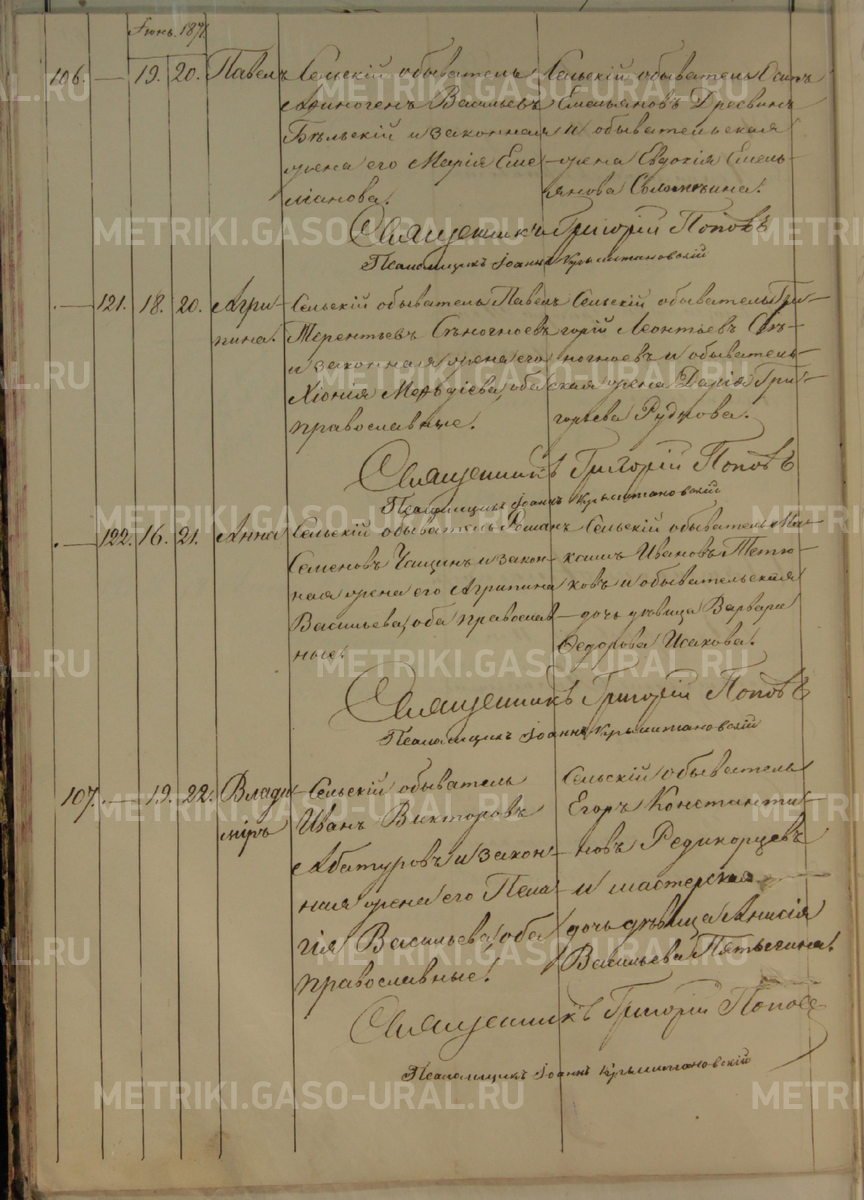 Іюнь 1871
106. — 19. 20. Павелъ
Сельскій обыватель
Аѳиногенъ Васильевъ
Бѣльскій и законная
жена его Марія Еме-
ліанова.
Сельскій обыватель Осипъ
Емельяновъ
и обывательская
жена Евдокія Емель-
янова
Священникъ Григорій Поповъ
Псаломщикъ Іоаннъ
— 121. 18. 20. Агри-
пина.
Сельскій обыватель Павелъ
Терентьевъ Сѣногноевъ
и законная жена его
Хіонія Меѳодіева, оба
православные.
Сельскій обыватель Гри-
горій Леонтьевъ Сѣ-
ногноевъ и обыватель-
ская жена Дарія Гри-
горьева Рудкова.
Священникъ Григорій Поповъ
Псаломщикъ Іоаннъ
— 122. 16. 21. Анна
Сельскій обыватель Романъ
Семеновъ Чащинъ и закон-
ная жена его Агрипина
Васильева, оба православ-
ные.
Сельскій обыватель Ма-
Ивановъ Тетю-
ковъ и обывательская
дочь дѣвица Варвара
Ѳедорова Исакова.
Священникъ Григорій Поповъ
Псаломщикъ Іоаннъ
107. — 19. 22. Влади-
міръ
Сельскій обыватель
Иванъ Викторовъ
Абатуровъ и закон-
ная жена его Пела-
гія Васильева, оба
православные.
Сельскій обыватель
Егоръ Константи-
новъ Редикорцевъ
и мастерская
дочь дѣвица Анисія
Васильева Пятыгина.
Священникъ Григорій Поповъ
Псаломщикъ Іоаннъ
METRIKI.GASO-URAL.RU